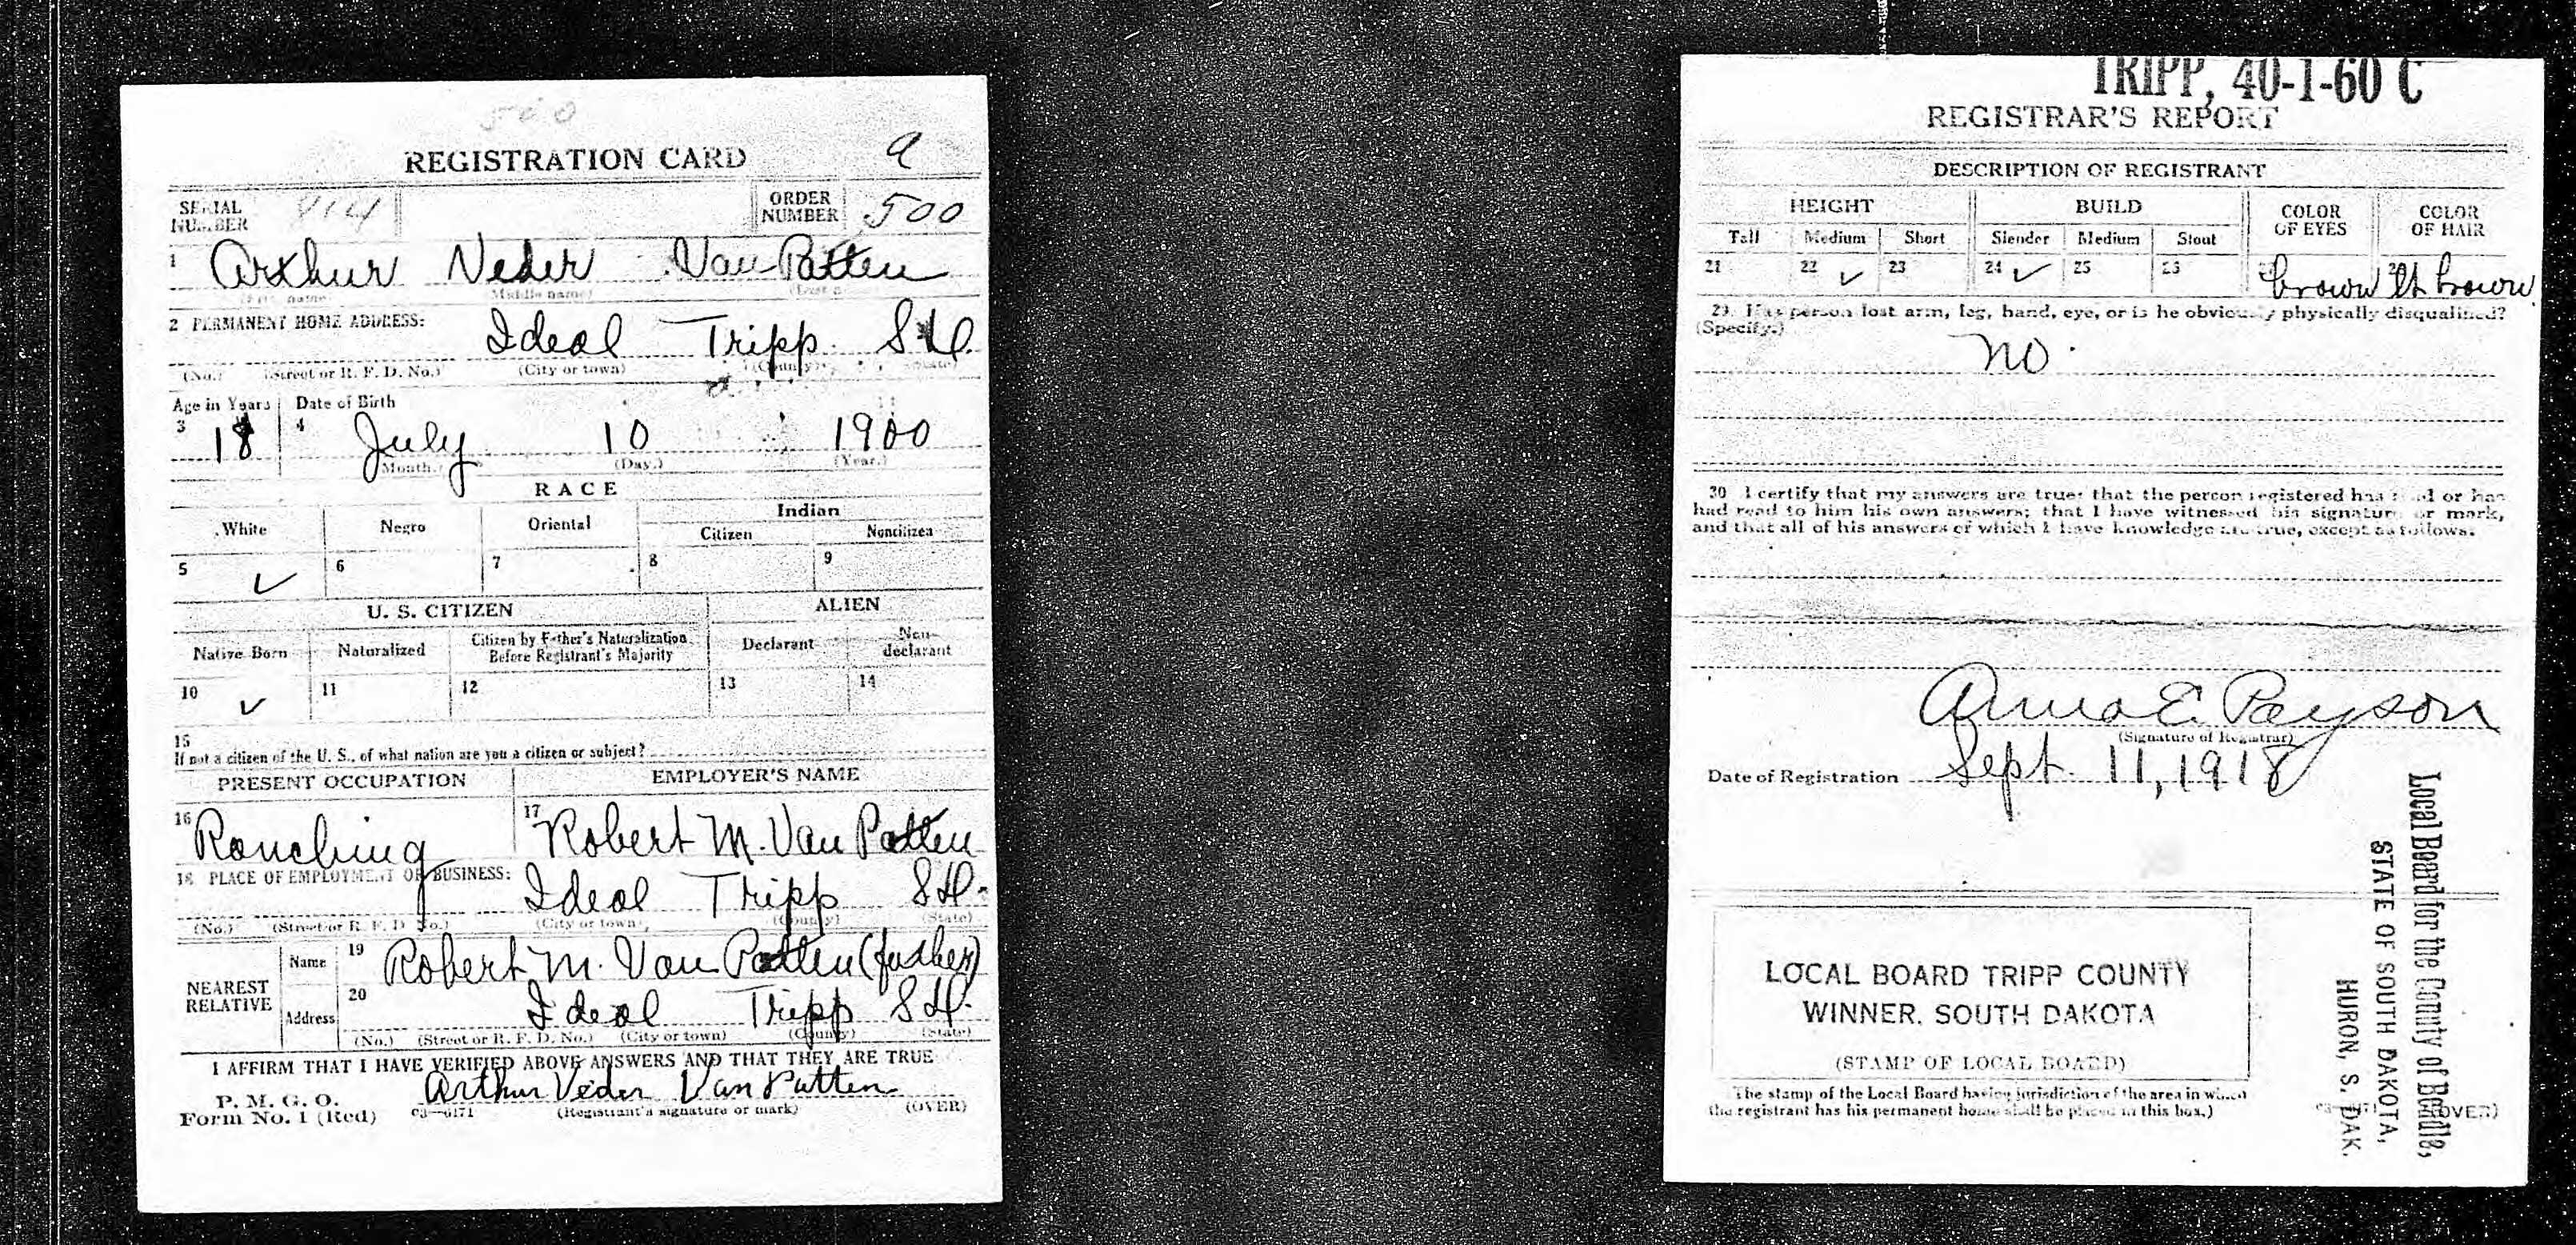 500
REGISTRATION CARD a
SERIAL NUMBER 914 ORDER NUMBER 500
1 Arthur Veder Van Patten
(First name) (Middle name) (Last name)
2 PERMANENT HOME ADDRESS: Ideal Tripp S.D.
(No.) (Street or R. F. D. No.) (City or town) (County) (State)
Age in Years Date of Birth
3 18 4 July 10 1900
(Month.) (Day.) (Year.)
RACE
White Negro Oriental Indian
Citizen Noncitizen
5 ✓ 6 7 8 9
U. S. CITIZEN ALIEN
Native Born Naturalized Citizen by Father's Naturalization Before Registrant's Majority Declarant Non-declarant
10 ✓ 11 12 13 14
15
If not a citizen of the U. S., of what nation are you a citizen or subject?
PRESENT OCCUPATION EMPLOYER'S NAME
16 Ranching 17 Robert M. Van Patten
18 PLACE OF EMPLOYMENT OR BUSINESS: Ideal Tripp S.D.
(No.) (Street or R. F. D. No.) (City or town) (County) (State)
NEAREST RELATIVE Name 19 Robert M. Van Patten (father)
Address 20 Ideal Tripp S.D.
(No.) (Street or R. F. D. No.) (City or town) (County) (State)
I AFFIRM THAT I HAVE VERIFIED ABOVE ANSWERS AND THAT THEY ARE TRUE
P. M. G. O. Arthur Veder Van Patten
Form No. 1 (Red) c3—6171 (Registrant's signature or mark) (OVER)
TRIPP, 40-1-60 C
REGISTRAR'S REPORT
DESCRIPTION OF REGISTRANT
HEIGHT BUILD COLOR OF EYES COLOR OF HAIR
Tall Medium Short Slender Medium Stout
21 22 ✓ 23 24 ✓ 25 26 brown lt brown
29 Has person lost arm, leg, hand, eye, or is he obviously physically disqualified?
(Specify.)
no.
30 I certify that my answers are true; that the person registered has read or has
had read to him his own answers; that I have witnessed his signature or mark,
and that all of his answers of which I have knowledge are true, except as follows:
Anna E. Payson
(Signature of Registrar)
Date of Registration Sept. 11, 1918
LOCAL BOARD TRIPP COUNTY
WINNER, SOUTH DAKOTA
(STAMP OF LOCAL BOARD)
The stamp of the Local Board having jurisdiction of the area in which
the registrant has his permanent home shall be placed in this box.)
c3—6171 (OVER)
Local Board for the County of Beadle,
STATE OF SOUTH DAKOTA,
HURON, S. DAK.